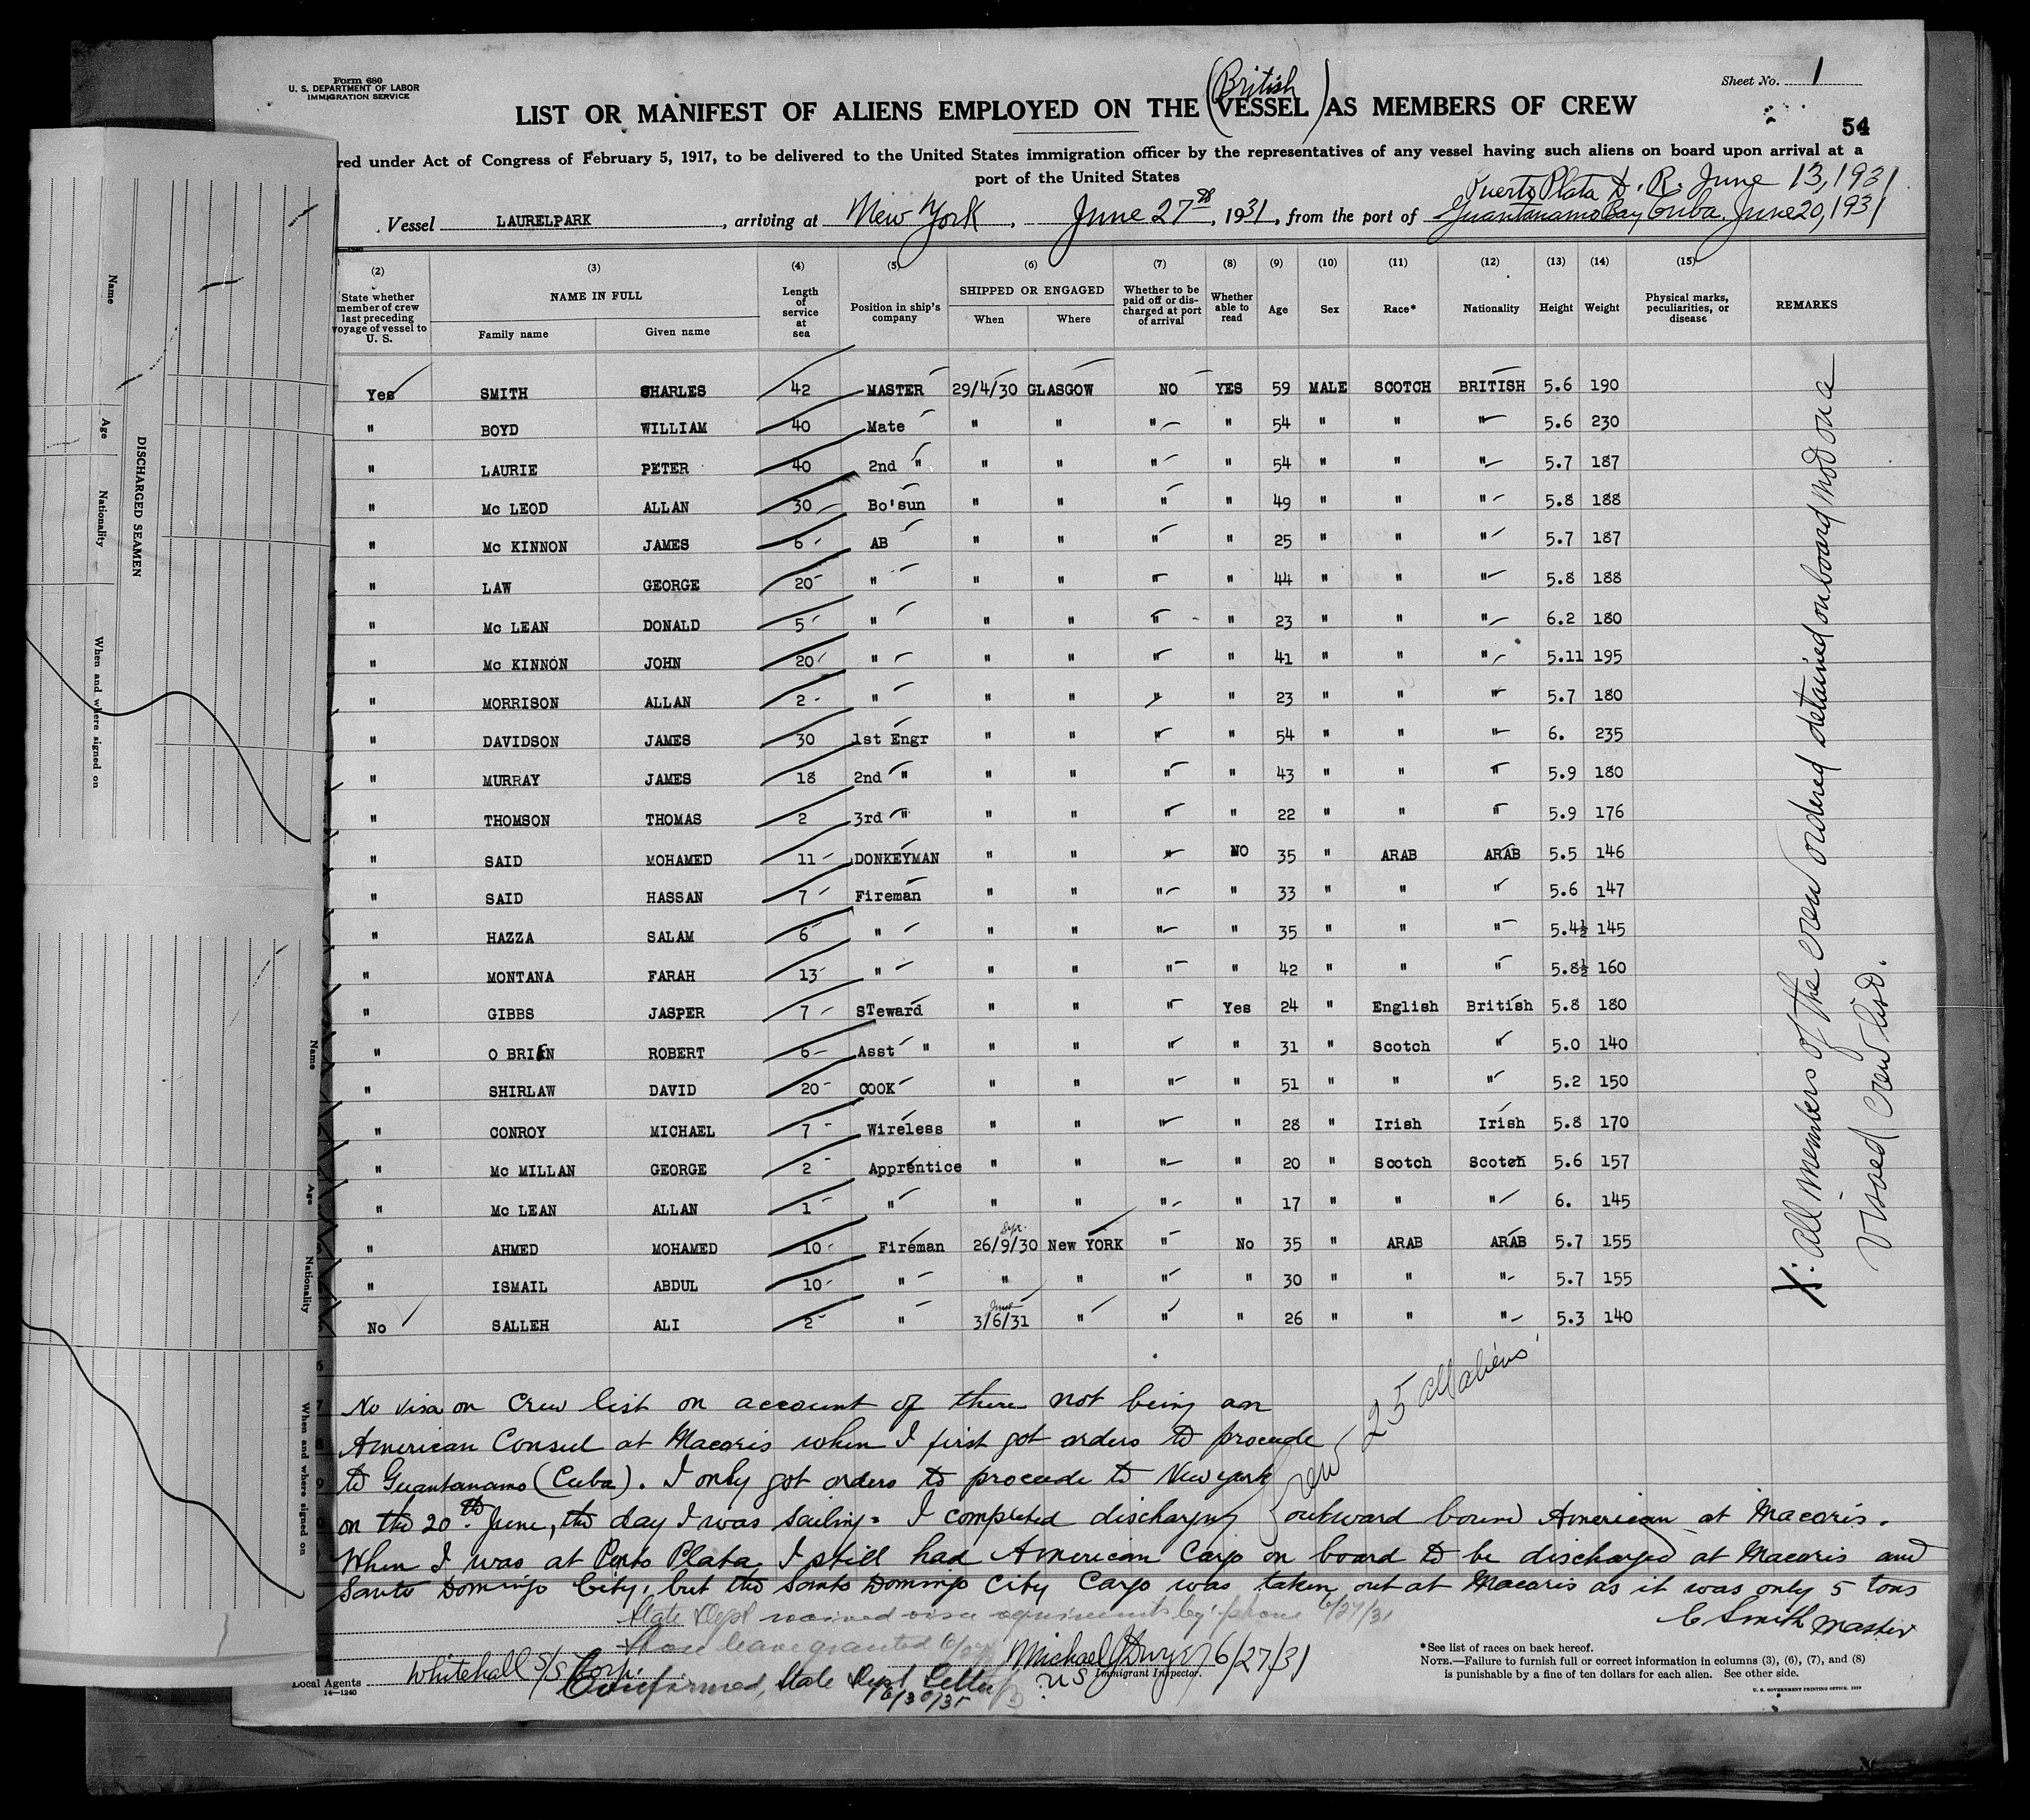 Form 680
U. S. DEPARTMENT OF LABOR
IMMIGRATION SERVICE
Sheet No. 1
(British)
LIST OR MANIFEST OF ALIENS EMPLOYED ON THE VESSEL AS MEMBERS OF CREW
54
red under Act of Congress of February 5, 1917, to be delivered to the United States immigration officer by the representatives of any vessel having such aliens on board upon arrival at a
port of the United States
Puerto Plata D. R. June 13, 1931
Vessel LAURELPARK, arriving at New York, June 27th, 1931, from the port of Guantanamo Bay, Cuba. June 20, 1931
(2) (3) (4) (5) (6) (7) (8) (9) (10) (11) (12) (13) (14) (15)
State whether member of crew last preceding voyage of vessel to U. S. | NAME IN FULL | Family name | Given name | Length of service at sea | Position in ship's company | SHIPPED OR ENGAGED | When | Where | Whether to be paid off or discharged at port of arrival | Whether able to read | Age | Sex | Race* | Nationality | Height | Weight | Physical marks, peculiarities, or disease | REMARKS
Yes SMITH SHARLES 42 MASTER 29/4/30 GLASGOW NO YES 59 MALE SCOTCH BRITISH 5.6 190
" BOYD WILLIAM 40 Mate " " " " 54 " " " 5.6 230
" LAURIE PETER 40 2nd " " " " " 54 " " " 5.7 187
" Mc LEOD ALLAN 30 Bo'sun " " " " 49 " " " 5.8 188
" Mc KINNON JAMES 6 AB " " " " 25 " " " 5.7 187
" LAW GEORGE 20 " " " " " 44 " " " 5.8 188
" Mc LEAN DONALD 5 " " " " " 23 " " " 6.2 180
" Mc KINNON JOHN 20 " " " " " 41 " " " 5.11 195
" MORRISON ALLAN 2 " " " " " 23 " " " 5.7 180
" DAVIDSON JAMES 30 1st Engr " " " " 54 " " " 6. 235
" MURRAY JAMES 18 2nd " " " " " 43 " " " 5.9 180
" THOMSON THOMAS 2 3rd " " " " " 22 " " " 5.9 176
" SAID MOHAMED 11 DONKEYMAN " " " NO 35 " ARAB ARAB 5.5 146
" SAID HASSAN 7 Fireman " " " " 33 " " " 5.6 147
" HAZZA SALAM 6 " " " " " 35 " " " 5.4½ 145
" MONTANA FARAH 13 " " " " " 42 " " " 5.8½ 160
" GIBBS JASPER 7 STeward " " " Yes 24 " English British 5.8 180
" O BRIEN ROBERT 6 Asst " " " " " 31 " Scotch " 5.0 140
" SHIRLAW DAVID 20 COOK " " " " 51 " " " 5.2 150
" CONROY MICHAEL 7 Wireless " " " " 28 " Irish Irish 5.8 170
" Mc MILLAN GEORGE 2 Apprentice " " " " 20 " Scotch Scotch 5.6 157
" Mc LEAN ALLAN 1 " " " " " 17 " " " 6. 145
" AHMED MOHAMED 10 Fireman 26/9/30 New YORK " No 35 " ARAB ARAB 5.7 155
" ISMAIL ABDUL 10 " " " " " 30 " " " 5.7 155
No SALLEH ALI 2 " 3/6/31 " " " 26 " " " 5.3 140
X: All members of the crew ordered detained on board
Visaed Crew list.
Crew 25 all aliens
No visa on Crew list on account of there not being an
American Consul at Macoris when I first got orders to proceede
to Guantanamo (Cuba). I only got orders to proceede to New york
on the 20th June, the day I was sailing. I completed discharging outward bound American at Macoris.
When I was at Porto Plata I still had American Cargo on board to be discharged at Macoris and
Santo Domingo City, but the Santo Domingo City Cargo was taken out at Macoris as it was only 5 tons
C Smith Master
State Dept waived visa requirements by phone 6/27/31
Shore leave granted
Michael J Dwyer 6/27/31
U S Immigrant Inspector.
Local Agents Whitehall S/S Corp.
14—1240
Confirmed, State Dept Letter
*See list of races on back hereof.
NOTE.—Failure to furnish full or correct information in columns (3), (6), (7), and (8)
is punishable by a fine of ten dollars for each alien. See other side.
U. S. GOVERNMENT PRINTING OFFICE
DISCHARGED SEAMEN
Name
Age
Nationality
When and where signed on
Name
Age
Nationality
When and where signed on